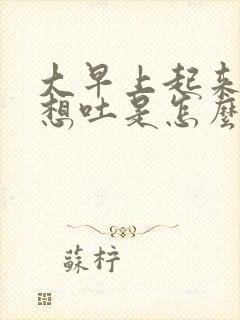 大早上起来
想吐是怎麼
蘇柠